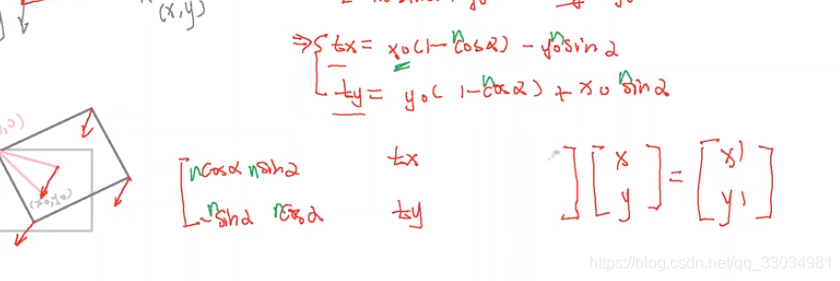 (x,y)
⇒{ tx = x₀(1-ncosα) - y₀nsinα
ty = y₀(1-ncosα) + x₀nsinα
,0)
(x₀,y₀)
[ ncosα nsinα tx ] [ x ] = [ x' ]
[ -nsinα ncosα ty ] [ y ] [ y' ]
https://blog.csdn.net/qq_33034981